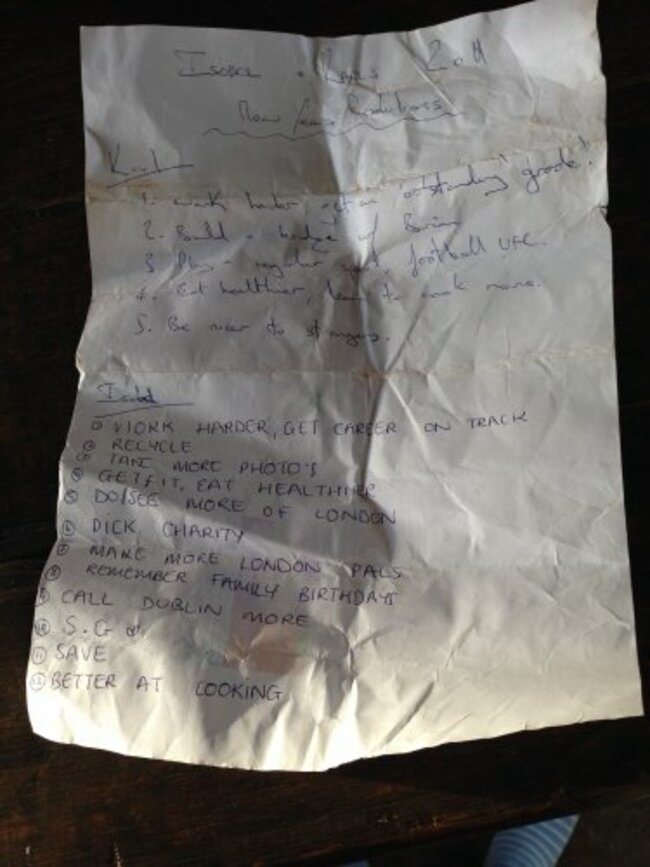 ISOBEL + KARL'S 2011
New Years Resolutions
Karl
1. work harder, get an 'outstanding' grade!
2. Build a bridge w/
3 Play regular, football UFC.
4. Eat healthier, learn to cook more.
5. Be nicer to strangers.
Isobel
① WORK HARDER, GET CAREER ON TRACK
② RECYCLE
③ TAKE MORE PHOTO'S
④ GET FIT, EAT HEALTHIER
⑤ DO/SEE MORE OF LONDON
⑥ DICK, CHARITY
⑦ MAKE MORE LONDON PALS
⑧ REMEMBER FAMILY BIRTHDAYS
⑨ CALL DUBLIN MORE
⑩ S.G
⑪ SAVE
⑫ BETTER AT COOKING